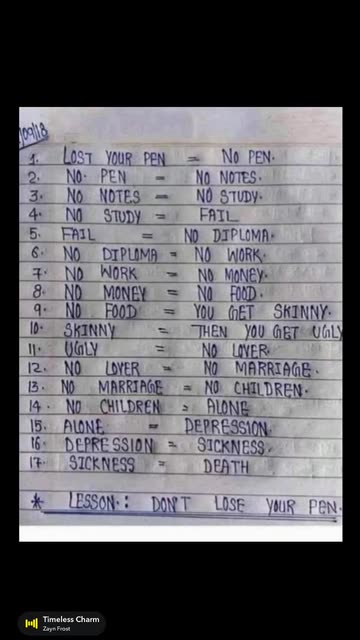 /09/18
1. LOST YOUR PEN = NO PEN.
2. NO. PEN = NO NOTES.
3. NO NOTES = NO STUDY.
4. NO STUDY = FAIL
5. FAIL = NO DIPLOMA.
6. NO DIPLOMA = NO WORK.
7. NO WORK = NO MONEY.
8. NO MONEY = NO FOOD.
9. NO FOOD = YOU GET SKINNY.
10. SKINNY = THEN YOU GET UGLY
11. UGLY = NO LOVER.
12. NO LOVER = NO MARRIAGE.
13. NO MARRIAGE = NO CHILDREN.
14. NO CHILDREN = ALONE
15. ALONE = DEPRESSION.
16. DEPRESSION = SICKNESS.
17. SICKNESS = DEATH
* LESSON.: DON'T LOSE YOUR PEN.
Timeless Charm
Zayn Frost